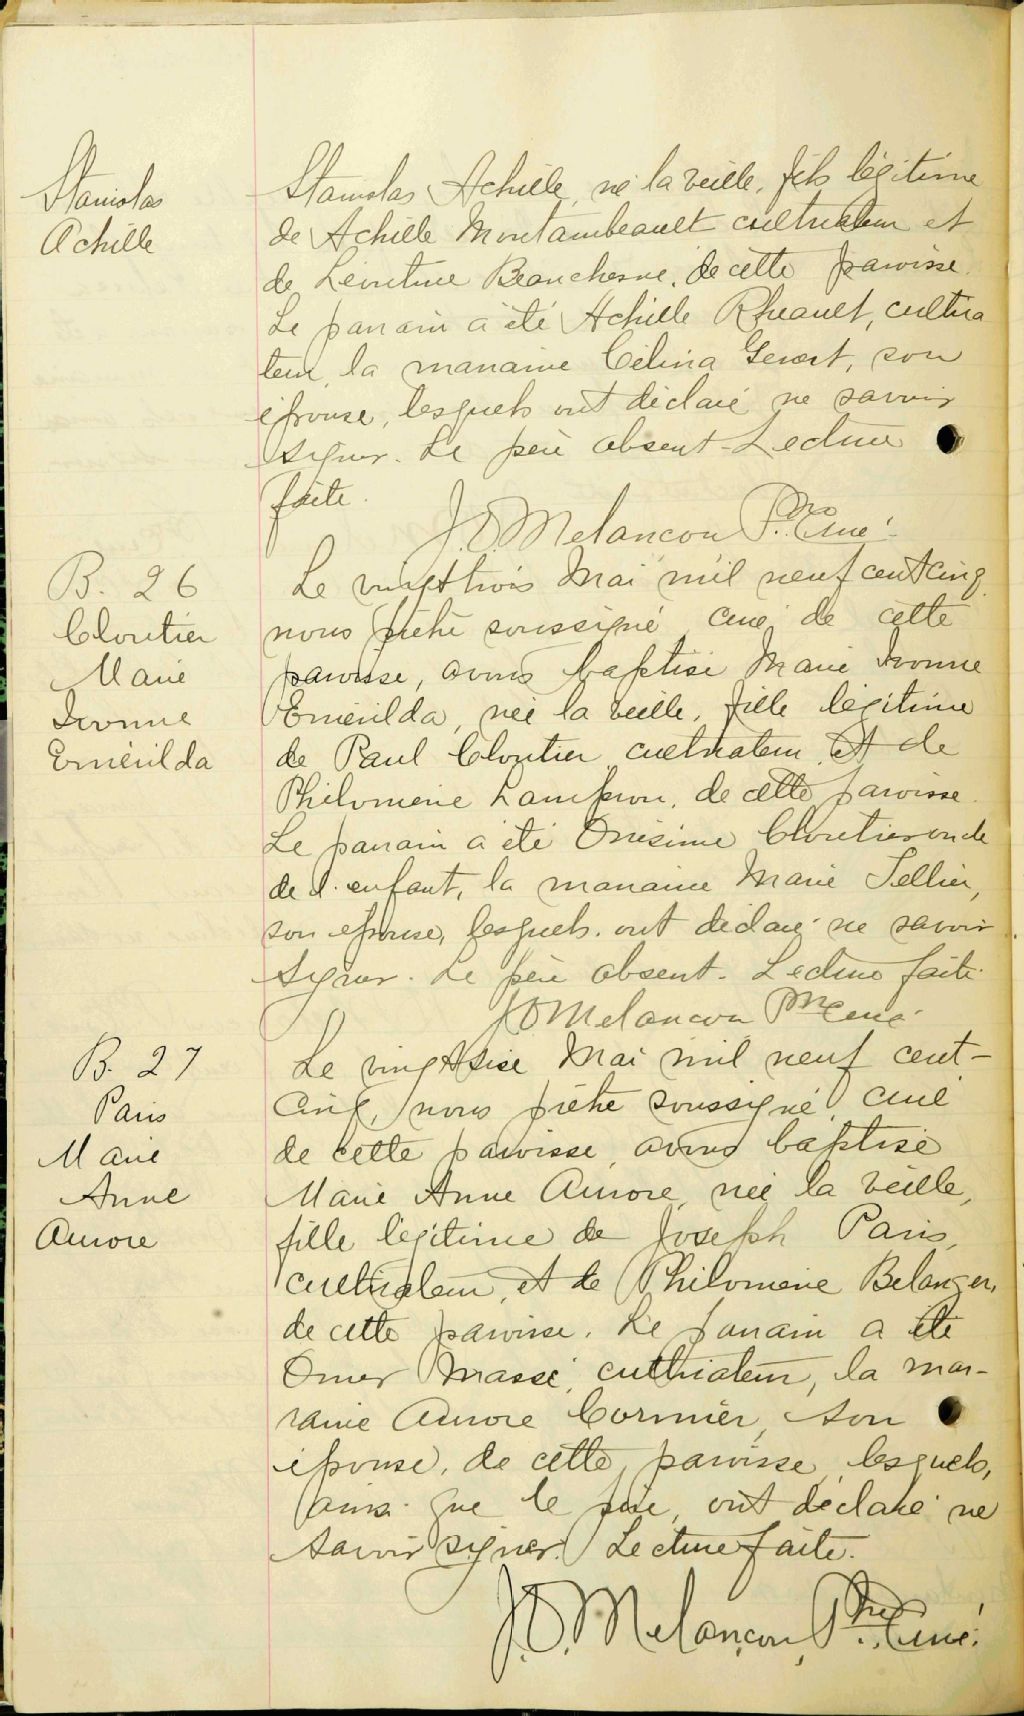 Stanislas
Achille
Stanislas Achille, né la veille, fils légitime
de Achille Montambeault cultivateur et
de Léontine Beauchesne, de cette paroisse.
Le parrain a été Achille Rheault, cultiva
teur, la marraine Célina Genest, son
épouse, lesquels ont déclaré ne savoir
signer. Le père absent. Lecture
faite.
J.O. Melancon Ptre Curé.
B. 26
Cloutier
Marie
Ivonne
Emérilda
Le vingt trois Mai mil neuf cent cinq
nous prêtre soussigné, curé de cette
paroisse, avons baptisé Marie Ivonne
Emérilda, née la veille, fille légitime
de Paul Cloutier cultivateur, et de
Philomène Lampron, de cette paroisse.
Le parrain a été Onésime Cloutier oncle
de l'enfant, la marraine Marie Tellier,
son épouse, lesquels ont déclaré ne savoir
signer. Le père absent. Lecture faite.
J O Melancon Ptre Curé.
B. 27
Paris
Marie
Anne
Aurore
Le vingt six Mai mil neuf cent-
cinq, nous prêtre soussigné, curé
de cette paroisse, avons baptisé
Marie Anne Aurore, née la veille,
fille légitime de Joseph Paris,
cultivateur, et de Philomène Belanger,
de cette paroisse. Le parrain a été
Omer Massé, cultivateur, la mar-
raine Aurore Cormier, son
épouse, de cette paroisse, lesquels,
ainsi que le père, ont déclaré ne
savoir signer. Lecture faite.
J.O. Melançon, Ptre Curé.